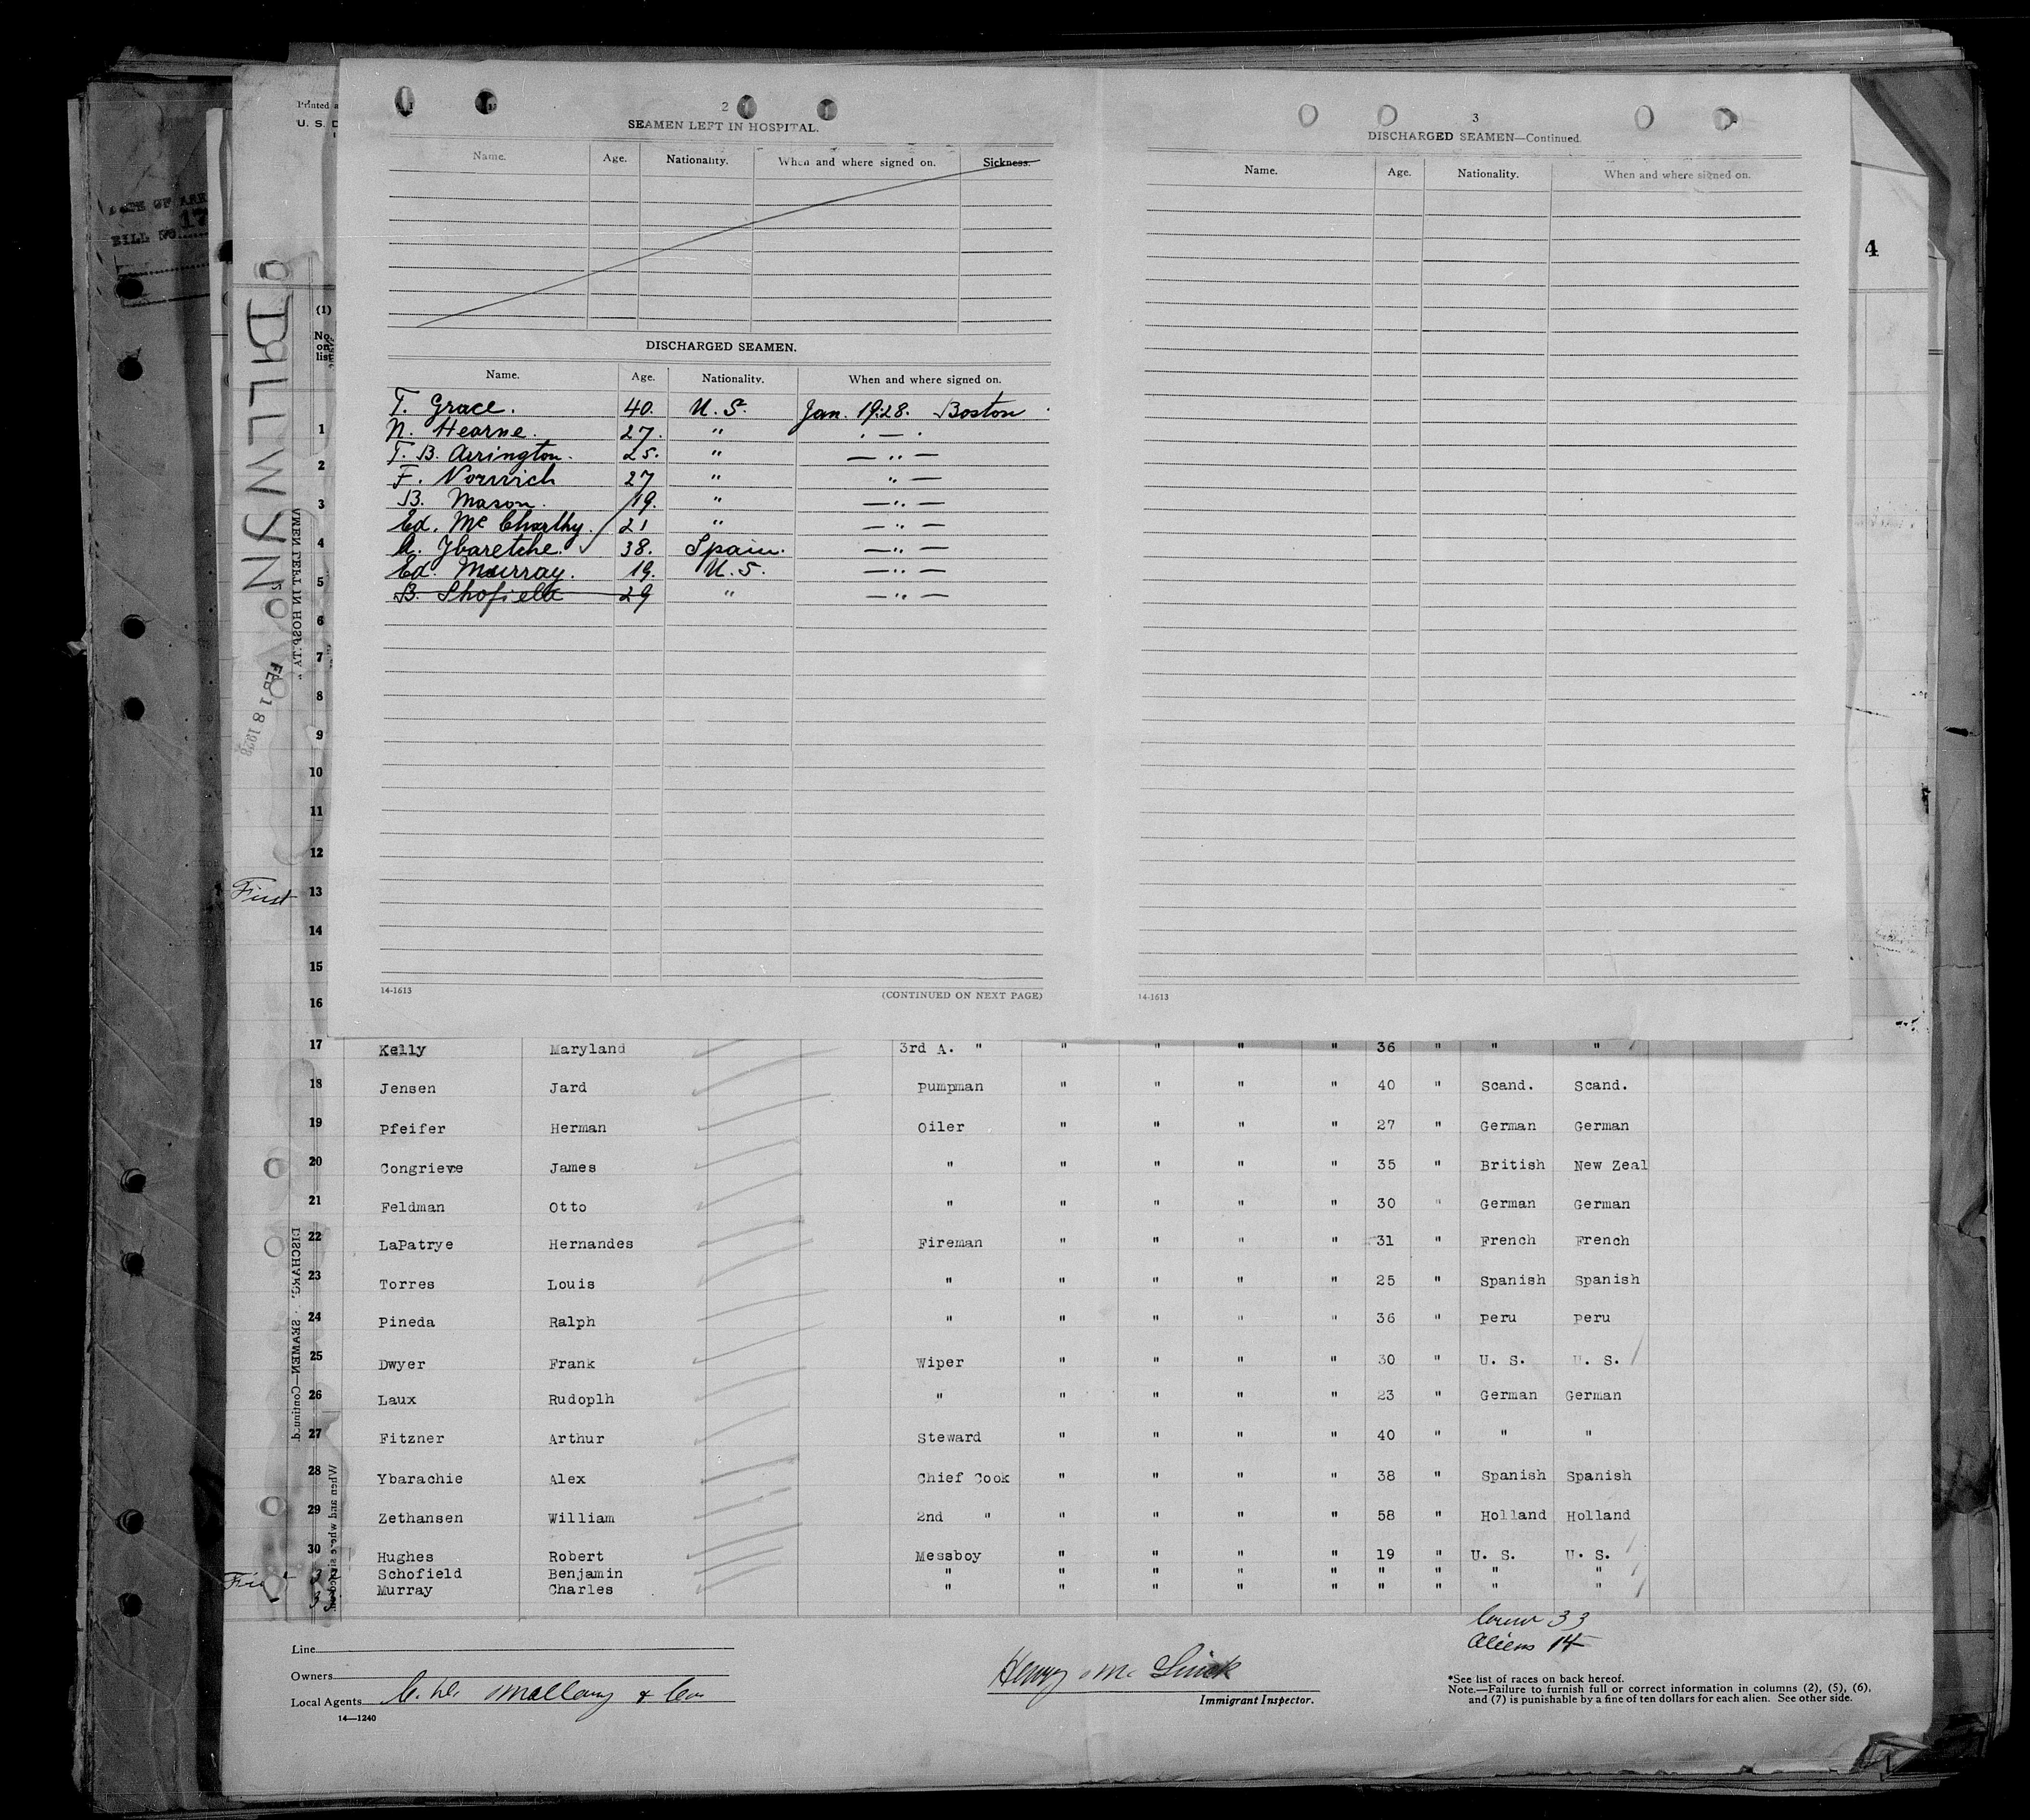 2
SEAMEN LEFT IN HOSPITAL.
Name. Age. Nationality. When and where signed on. Sickness.
DISCHARGED SEAMEN.
Name. Age. Nationality. When and where signed on.
T. Grace. 40. U. S. Jan. 19:28. Boston
N. Hearne. 27. " . — .
T. B. Arrington. 25. " — " —
F. Norwich 27 " " —
B. Mason. 19. " — " —
Ed. Mc Charthy. 21 " — " —
A. Ybaretche. 38. Spain. — " —
Ed. Murray. 19. U. S. — " —
B. Shofield 29 " — " —
14-1613
(CONTINUED ON NEXT PAGE)
3
DISCHARGED SEAMEN—Continued.
Name. Age. Nationality. When and where signed on.
14-1613
4
Printed
U. S.
BILL NO. 17
DILLWYN
FEB 18 1928
(1)
No. on list
1
2
3
4
5
6
7
8
9
10
11
12
First 13
14
15
16
17 Kelly Maryland 3rd A. " " " " " 36 " " "
18 Jensen Jard Pumpman " " " " 40 " Scand. Scand.
19 Pfeifer Herman Oiler " " " " 27 " German German
20 Congrieve James " " " " " 35 " British New Zeal
21 Feldman Otto " " " " " 30 " German German
22 LaPatrye Hernandes Fireman " " " " 31 " French French
23 Torres Louis " " " " " 25 " Spanish Spanish
24 Pineda Ralph " " " " " 36 " Peru Peru
25 Dwyer Frank Wiper " " " " 30 " U. S. U. S.
26 Laux Rudoplh " " " " " 23 " German German
27 Fitzner Arthur Steward " " " " 40 " " "
28 Ybarachie Alex Chief Cook " " " " 38 " Spanish Spanish
29 Zethansen William 2nd " " " " " 58 " Holland Holland
30 Hughes Robert Messboy " " " " 19 " U. S. U. S.
Schofield Benjamin " " " " " " " " "
Murray Charles " " " " " " " " "
Crew 33
Aliens 14
Line
Owners
Local Agents
14—1240
Henry Mc
Immigrant Inspector.
*See list of races on back hereof.
Note.—Failure to furnish full or correct information in columns (2), (5), (6),
and (7) is punishable by a fine of ten dollars for each alien. See other side.